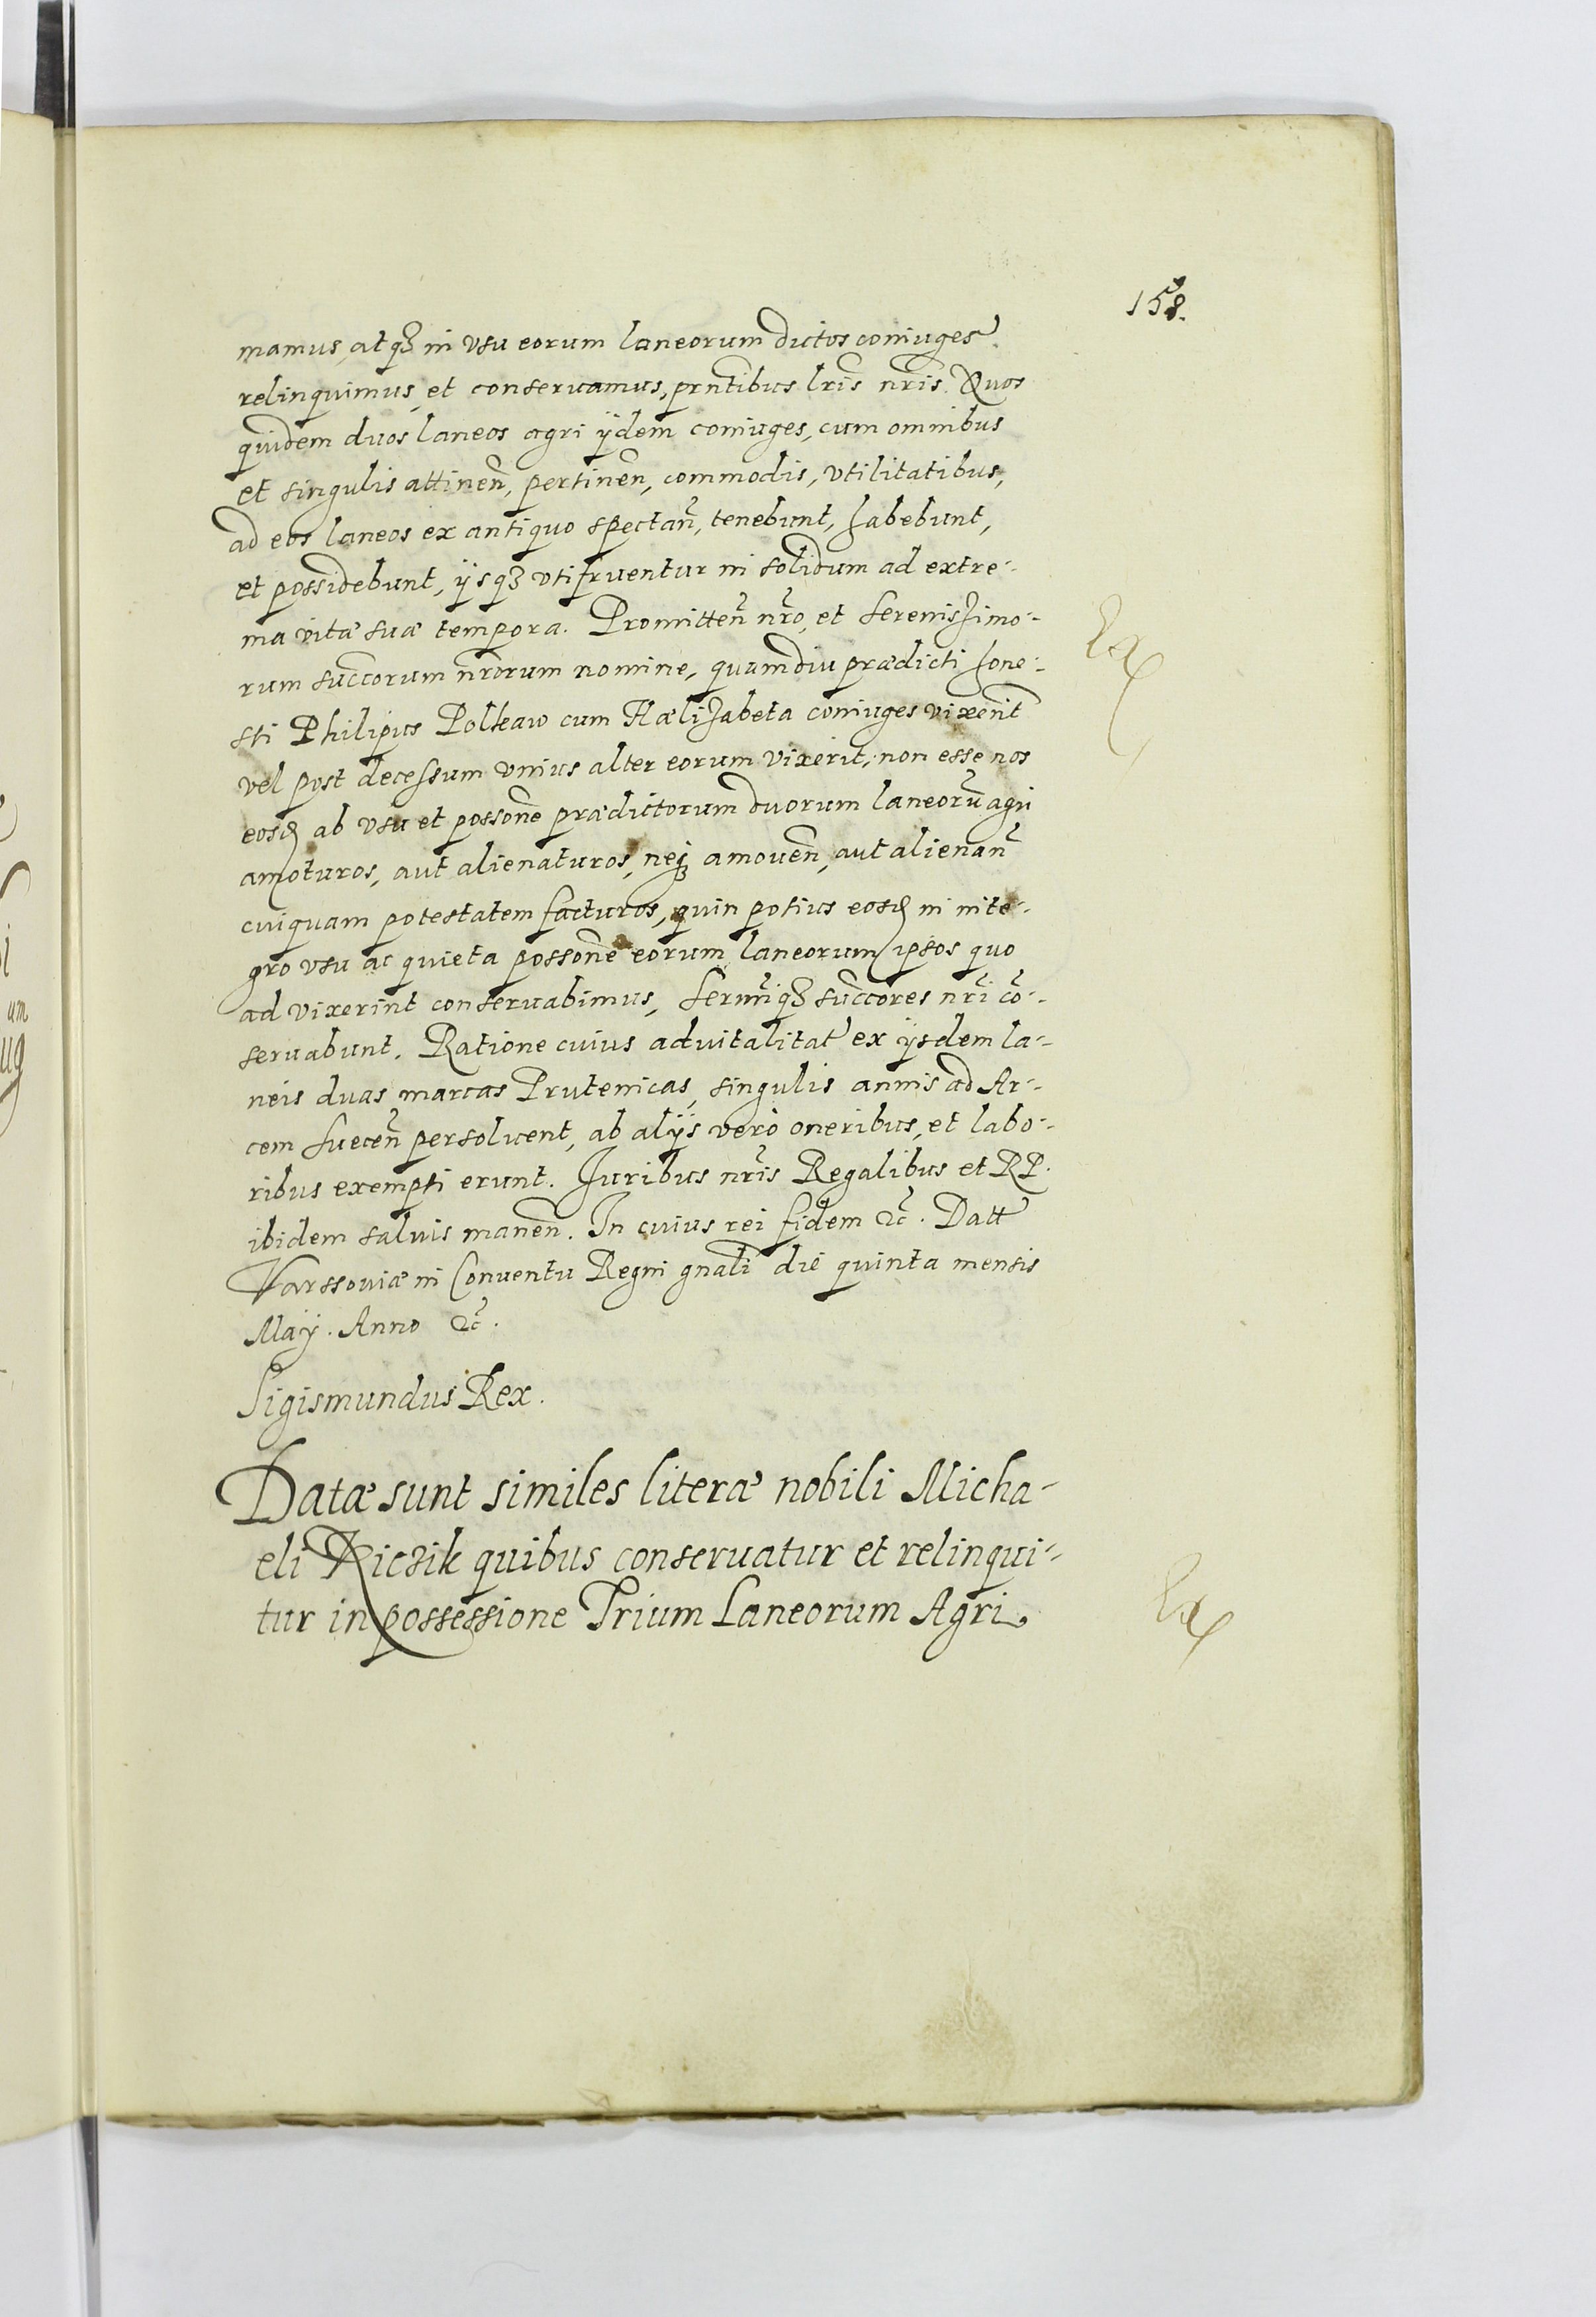 158.
mamus, atq₃ in vsu eorum laneorum dictos coniuges
relinquimus, et conseruamus, prñtibus lris̃ nris̃. Quos
quidem duos laneos agri ÿdem coniuges, cum omnibus
et singulis attineñ, pertineñ, commodis, vtilitatibus,
ad eos laneos ex antiquo spectañ, tenebunt, habebunt,
et possidebunt, ÿsq₃ vtifruentur in solidum ad extre-
ma vitæ suæ tempora. Promitteñ nr̃o, et Serenissimo-
rum succ̃orum nr̃orum nomine, quamdiu prædicti hone-
sti Philipus Polkaw cum Hælizabeta coniuges vixerint
vel post decessum vnius alter eorum vixerit, non esse nos
eosd ab vsu et possonẽ prædictorum duorum laneorũ agri
amoturos, aut alienaturos, neq₃ amoueñ, aut alienañ
cuiquam potestatem facturos, quin potius eosd in inte-
gro vsu ac quieta possonẽ eorum laneorum ipsos quo
ad vixerint conseruabimus, Serm̃iq₃ succ̃ores nr̃i cõ-
seruabunt. Ratione cuius aduitalitat ex ÿsdem la-
neis duas marcas Prutenicas, singulis annis ad Ar-
cem Sueceñ persoluent, ab alÿs verò oneribus, et labo-
ribus exempti erunt. Juribus nr̃is Regalibus et RP.
ibidem saluis maneñ. In cuius rei fidem &c̃. Datt
Varssouiæ in Conuentu Regni gnali̇̃ die quinta mensis
Maÿ. Anno &c̃.
Sigismundus Rex.
Datæ sunt similes literæ nobili Micha-
eli Ricзik quibus conseruatur et relinqui-
tur in possessione Trium Laneorum Agri.